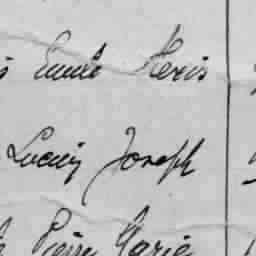 Emile Heris
Lucien Joseph
Pierre Marie